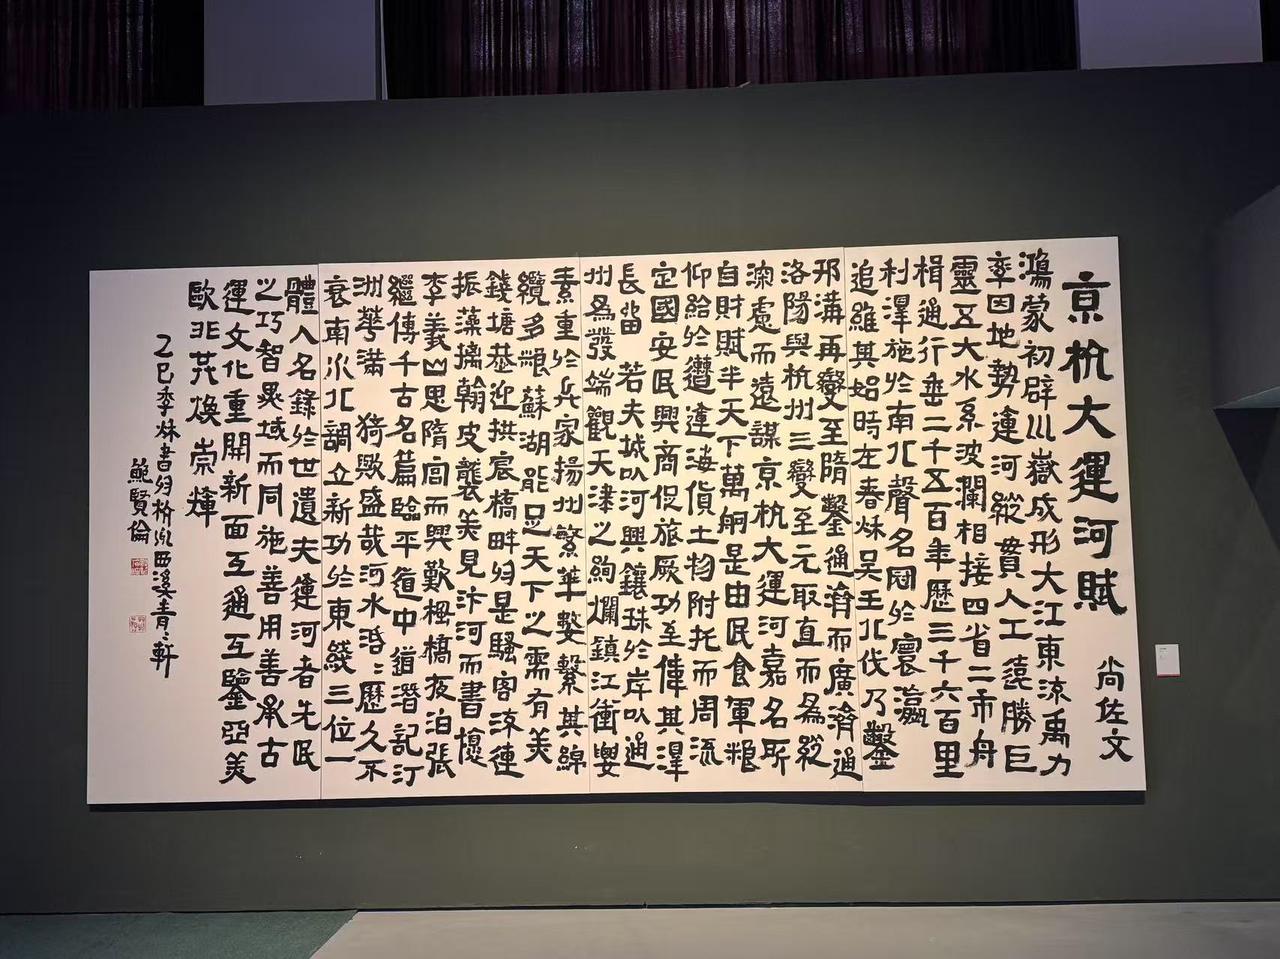 京杭大運河賦 尚佐文
鴻蒙初辟川嶽成形大江東流禹力
率因地勢運河縱貫人工遠勝巨
靈五大水系波瀾相接四省二市舟
楫通行垂二千五百年歷三千六百里
利澤施於南北聲名冠於寰瀛
追維其始時在春秋吳王北伐乃鑿
邗溝再變至隋鑿通濟而廣濟通
洛陽與杭州三變至元取直而為縱
深慮而遠謀京杭大運河嘉名所
自財賦半天下萬舸是由民食軍糧
仰給於漕運海貨土物附托而周流
定國安民興商促旅厥功至偉其澤
長留 若夫城以河興鑲珠於岸以通
州為發端觀天津之絢爛鎮江衝要
素重於兵家揚州繁華繫其綿
纜多糧蘇湖能足天下之需有美
錢塘恭迎拱宸橋畔歸是騷客流連
振藻摛翰皮襲美見汴河而書懷
李義山思隋宮而興歎楓橋夜泊張
繼傳千古名篇臨平道中道潛記汀
洲華滿 猗歟盛哉河水湯湯歷久不
衰南水北調立新功於東綫三位一
體入名錄於世遺夫運河者先民
之巧智異域而同施善用善承古
運文化重開新面互通互鑒亞美
歐非共煥崇輝
乙巳季秋書於杭州西溪青青軒
鮑賢倫